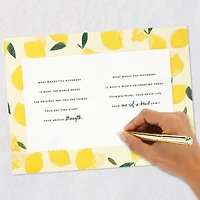 WHAT MAKES YOU DIFFERENT
IS WHAT THE WORLD NEEDS
THE ORIGINAL WAY YOU SEE THINGS
YOUR EXCITING STORY
YOUR UNIQUE Strengths.
WHAT MAKES YOU DIFFERENT
IS WHAT'S WORTH CELEBRATING TODAY
YOUR BIG HEART, YOUR BRAVE LIFE
YOUR one-of-a-kind SPIRIT.